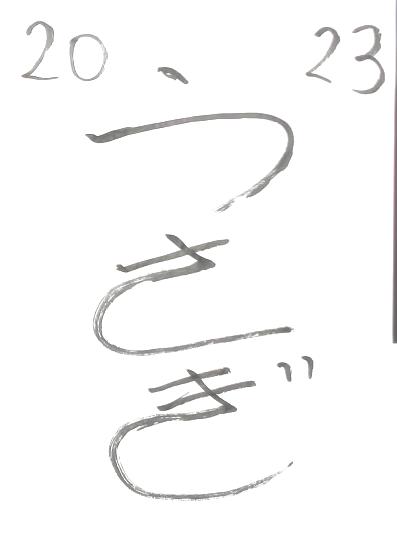 20 23
うさぎ